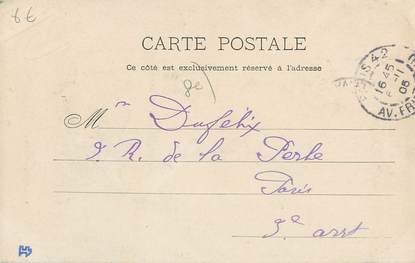 8€
CARTE POSTALE
Ce côté est exclusivement réservé à l'adresse
PARIS 42
16 45
11
05
AV. FR
8e
Mr Dufélix
9. R. de la Perle
Paris
3e arrt